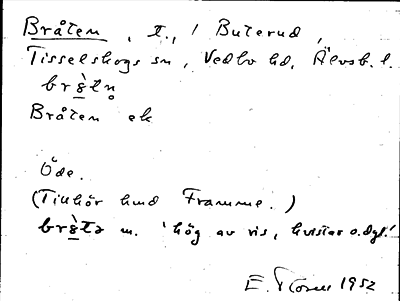 Bråten, t., i Buterud,
Tisselskogs sn, Vedbo hd, Älvsb. l.
Bråten ek
Öde.
(Tillhör hmd Framme.)
m. 'hög av ris, kvistar o.dyl.'
E. 1952